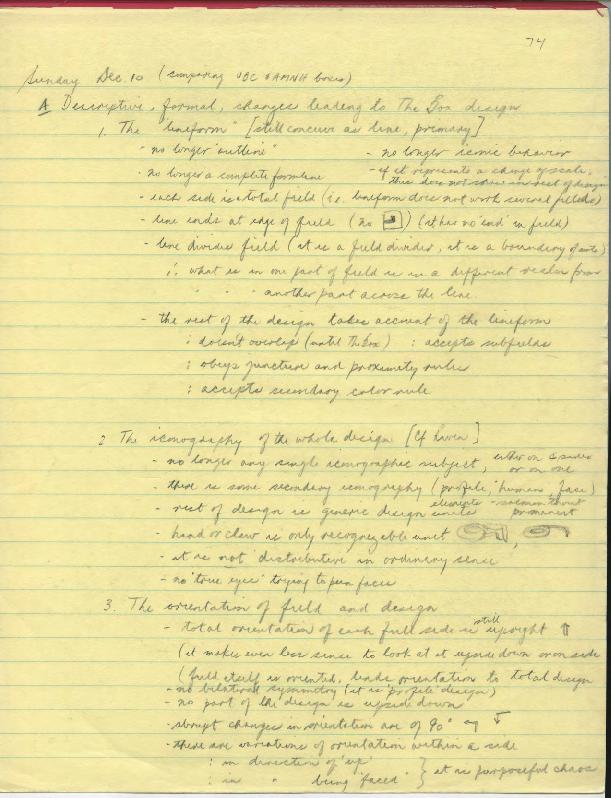 74
Sunday Dec 10 (comparing UBC & AMNH boxes)
A Descriptive, formal, changes leading to The Box design
1. The "lineform" [still conceive as line, primary]
- no longer "outline" - no longer iconic behavior
- no longer a complete formline - if it represents a change of scale,
this does not in rest of design
- each side is total field (i.e. lineform does not work several fields)
- line ends at edge of field (no ) (it has no 'end' in field)
- line divides field (it is a field divider, it is a boundary of sorts)
∴ what is in one part of field is in a different realm from
" " " another part across the line.
- the rest of the design takes account of the lineform
: doesn't overlap (until The Box) : accepts subfields
: obeys juncture and proximity rules
: accepts secondary color rule
2 The iconography of the whole design [Cf Haven]
- no longer any single iconographic subject, either on 4 sides
or on one
- there is some secondary iconography (profile, 'human' face)
- rest of design is generic design units elements - salmon-trout
prominent
- hand or claw is only recognizable unit ,
- it is not 'distributive' in ordinary sense
- no 'true eyes' trying to pun faces
3. The orientation of field and design
- total orientation of each full side is still upright ⇑
(it makes even less sense to look at it upside down or on side
(field itself is oriented, lends orientation to total design
- no bilateral symmetry (it is 'profile' design)
- no part of the design is upside down
- abrupt changes in orientation are of 90°
- there are variations of orientation within a side
: in direction of 'up'
: in " being 'faced' } it is purposeful chaos